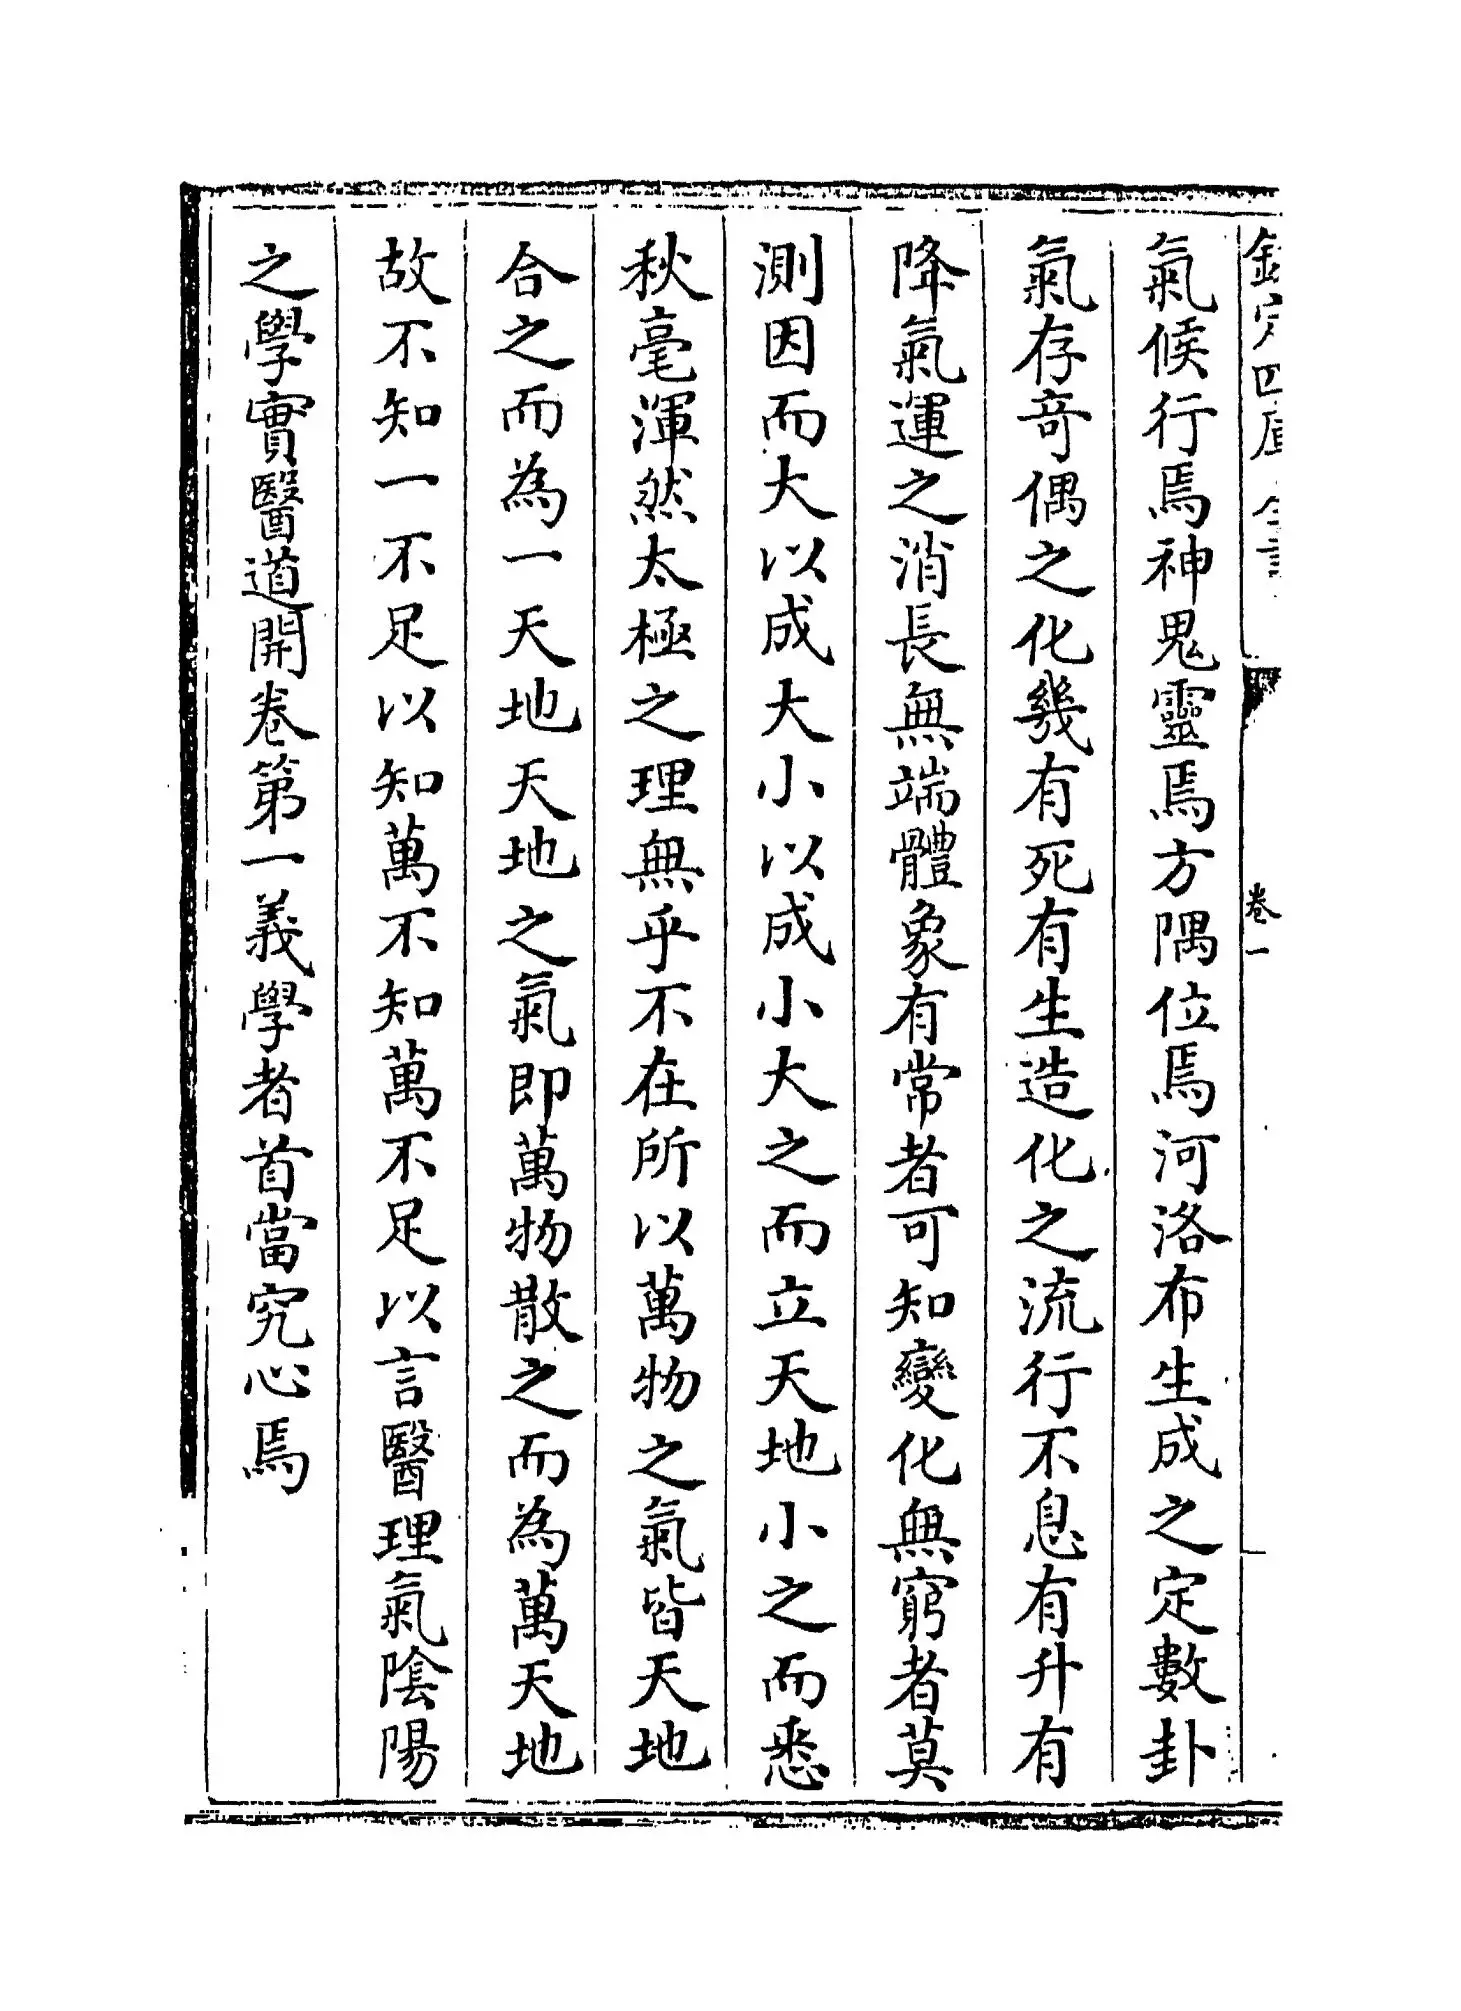 欽定四庫全書
卷一
氣候行焉神鬼靈焉方隅位焉河洛布生成之定數卦
氣存奇偶之化幾有死有生造化之流行不息有升有
降氣運之消長無端體象有常者可知變化無窮者莫
測因而大以成大小以成小大之而立天地小之而悉
秋毫渾然太極之理無乎不在所以萬物之氣皆天地
合之而為一天地天地之氣即萬物散之而為萬天地
故不知一不足以知萬不知萬不足以言醫理氣陰陽
之學實醫道開卷第一義學者首當究心焉